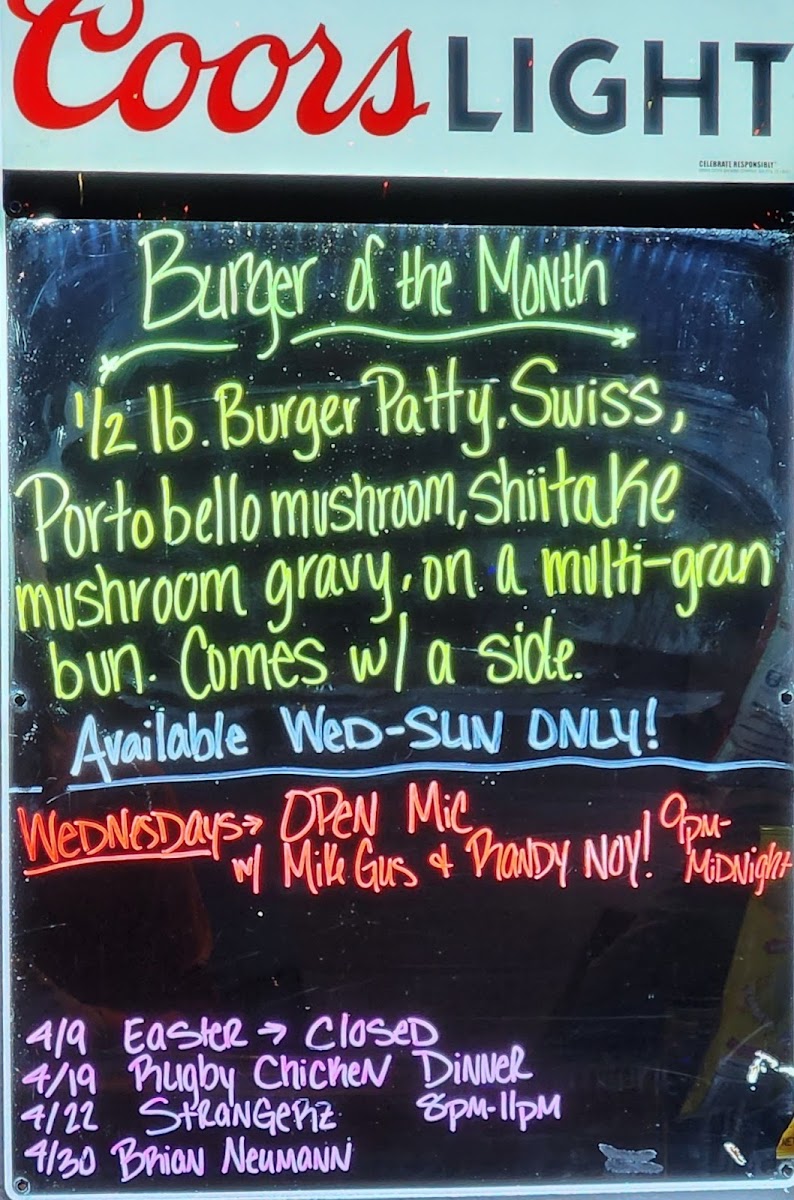 Coors LIGHT
CELEBRATE RESPONSIBLY
Burger of the Month
1/2 lb. Burger Patty, Swiss,
Portobello mushroom, shiitake
mushroom gravy, on a multi-gran
bun. Comes w/ a side.
Available WED-SUN ONLY!
WEDNESDAYS→ OPEN MIC 9PM-
w/ Mike Gus & RANDY NOY! MIDNIGHT
4/9 EASTER → CLOSED
4/19 Rugby Chicken DINNER
4/22 STRANGERZ 8PM-11PM
4/30 Brian Neumann